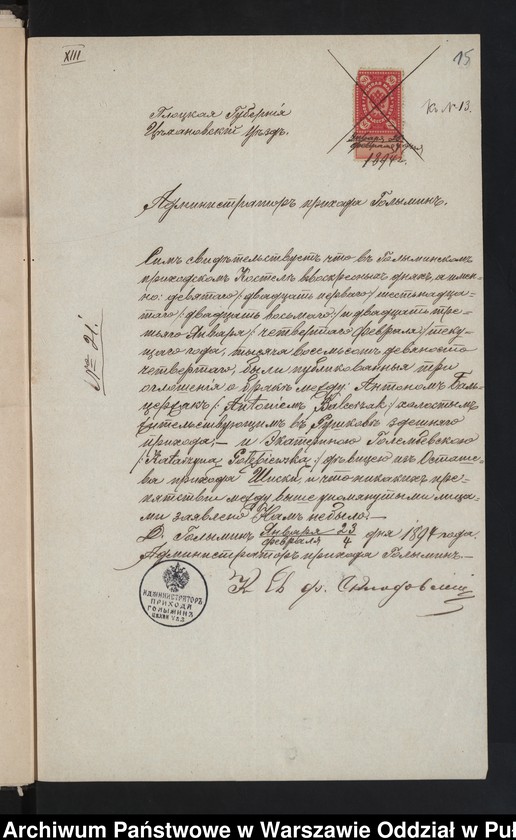 XIII
15
К № 13.
Января 23
февраля 4 дня
1894 г.
Плоцкая Губернія
Цѣхановскій уѣздъ.
Администраторъ прихода Голыминъ.
Симъ свидѣтельствуетъ что въ Голыминскомъ
приходскомъ Костелѣ въ воскресныхъ дняхъ, а имен-
но: девятаго / двадцать перваго / шестнадца-
таго / двадцать восьмаго / и двадцать тре-
тьяго Января / четвертаго февраля / теку-
щаго года, тысяча восемьсотъ девяносто
четвертаго, были публикованныя три
оглашенія о бракѣ между: Антономъ Бал-
цержакъ / Antoniem Balcerzak / холостымъ
жительствующимъ въ здешняго
прихода; — и Екатериною Голембевскою
/ Katarzyna Gołębiewska / дѣвицею изъ Осташе-
ва прихода и что никакихъ пре-
пятствій между выше упомянутыми лица-
ми заявлено Намъ небыло. —
Д. Голыминъ Января 23 / февраля 4 дня 1894 года.
Администраторъ прихода Голыминъ. —
К
№ 21.
АДМИНИСТРАТОРЪ
ПРИХОДА
ГОЛЫМИНЪ
Archiwum Państwowe w Warszawie Oddział w Puł